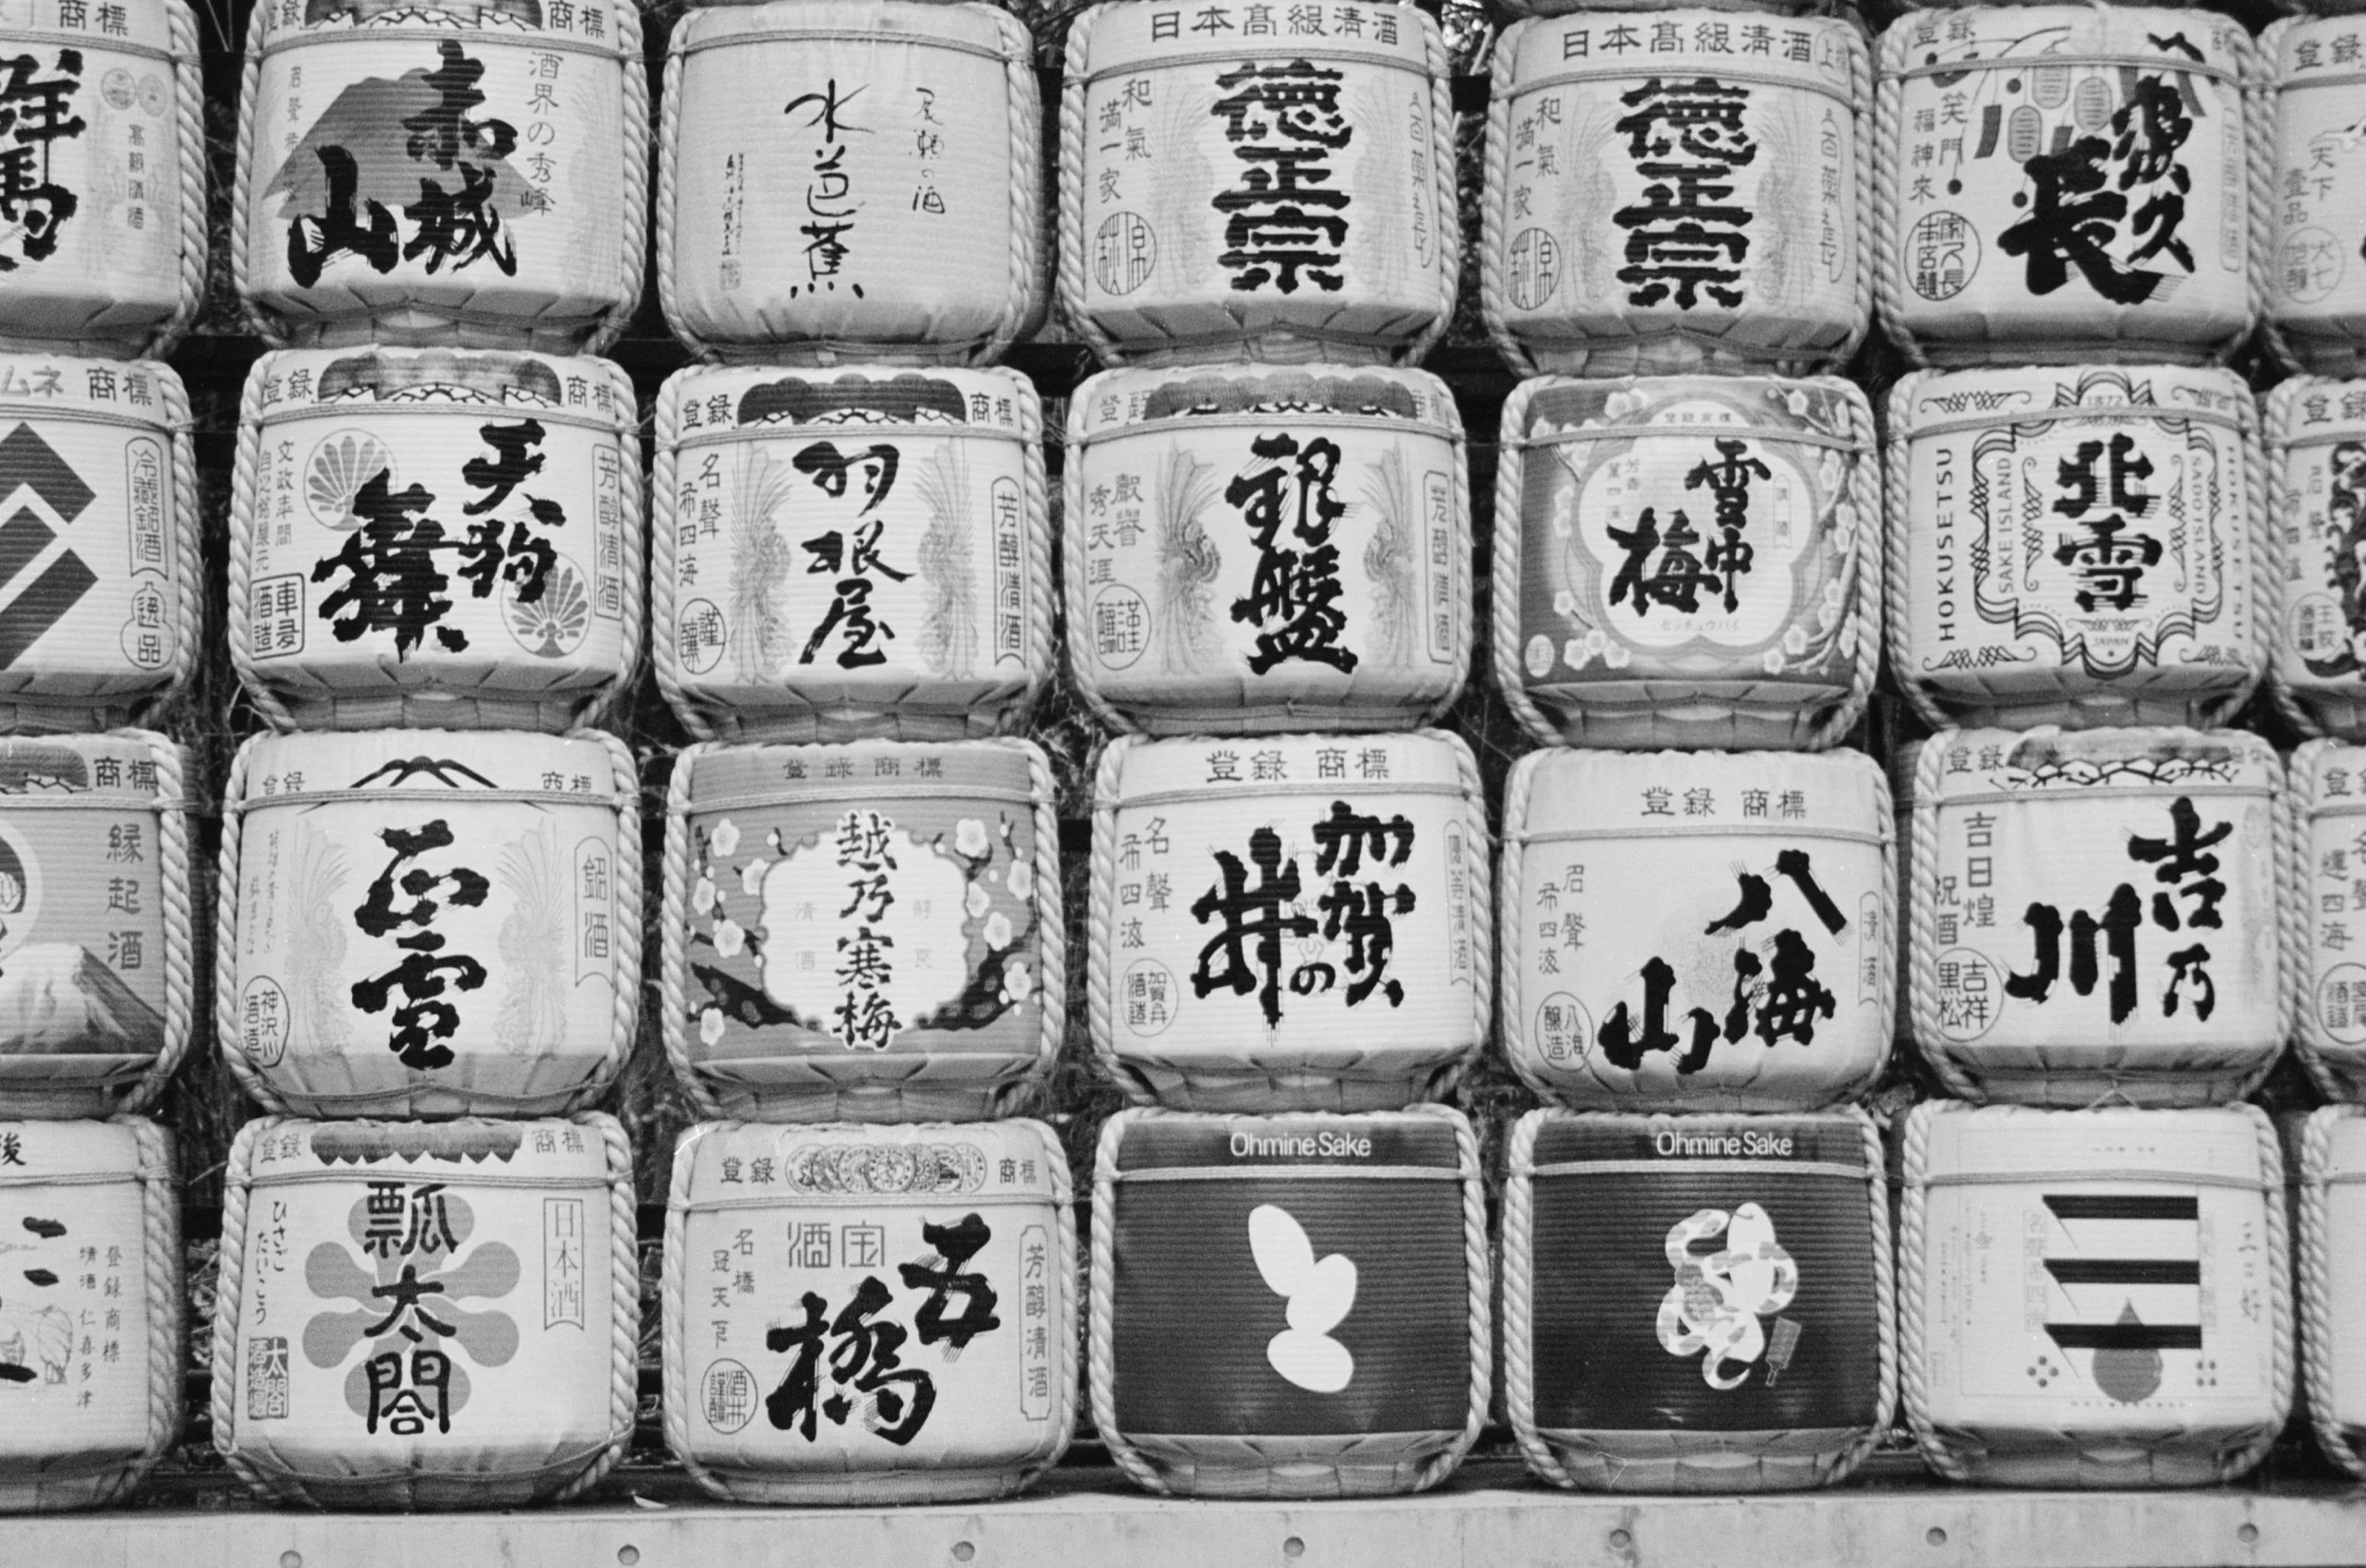 商標
群馬
高級清酒
商標
酒界の秀峰
赤城山
尾瀬の酒
水芭蕉
日本高級清酒
德正宗
和氣満一家
日本高級清酒
德正宗
和氣満一家
登録
笑門福神来
登録
天下
壹品
大七
ムネ 商標
冷蔵銘酒
逸品
登録 商標
天狗舞
芳醇清酒
文政年間
車多酒造
登録 商標
羽根屋
名聲希四海
芳醇清酒
謹醸
登録
銀盤
嚴譽秀天涯
芳醇清酒
謹醸
登録商標
雪中梅
セッチュウバイ
1872
北雪
HOKUSETSU
SAKE ISLAND
SADO ISLAND
HOKUSETSU
JAPAN
登録
商標
縁起酒
登録 商標
正雪
銘酒
神沢川酒造
登録商標
越乃寒梅
清酒
登録 商標
加賀の井
名聲希四海
加賀の井酒造
登録 商標
八海山
名聲希四海
清酒
八海醸造
登録
吉乃川
吉日煌祝酒
吉祥黒松
登録
後
登録商標
清酒 仁喜多津
登録 商標
瓢太閤
日本酒
ひさごたいこう
太閤酒造場
登録 商標
宝酒
五橋
名橋冠天下
芳醇清酒
Ohmine Sake
Ohmine Sake
三好